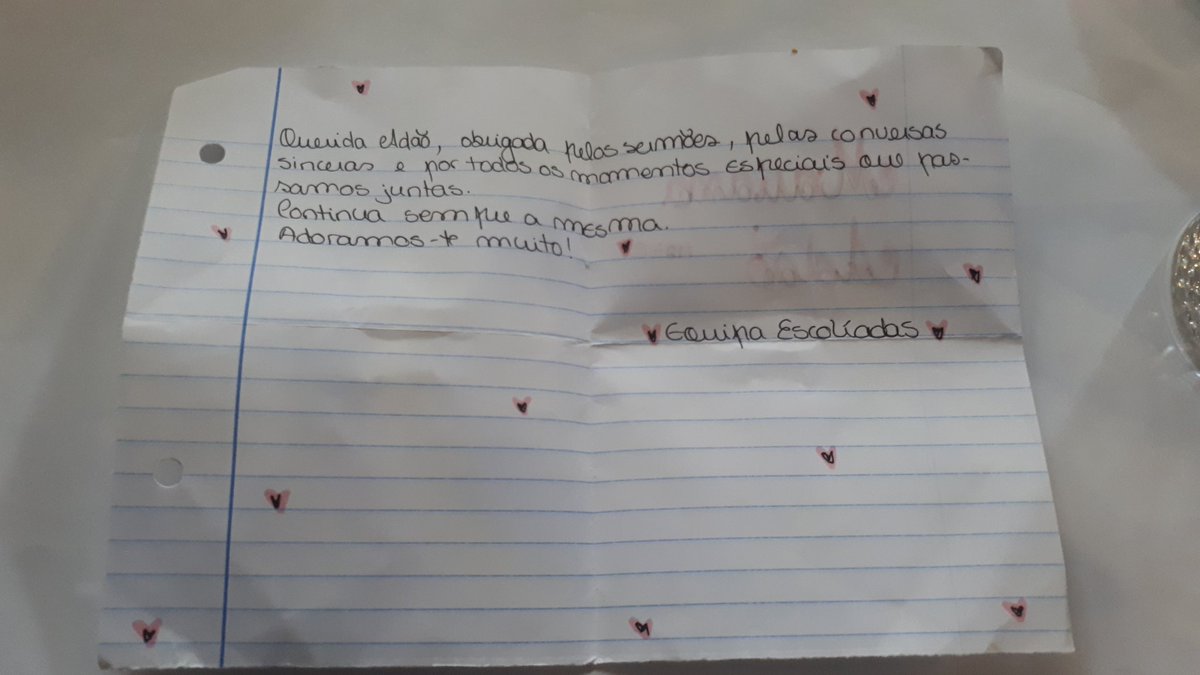 Querida eldão, obrigada pelos sermões, pelas conversas
sinceras e por todos os momentos especiais que pas-
samos juntas.
Continua sempre a mesma.
Adoramos-te muito!
Equipa Escolíadas